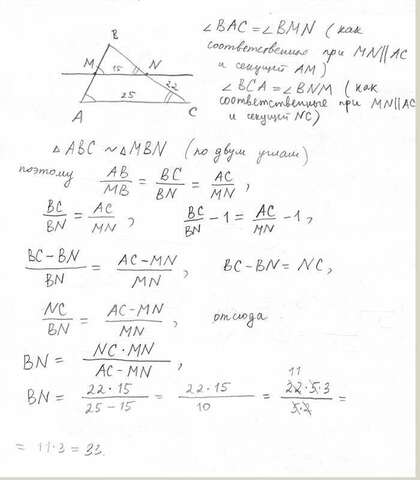 B
M 15 N
22
A 25 C
∠BAC = ∠BMN (как
соответственные при MN||AC
и секущей AM)
∠BCA = ∠BNM (как
соответственные при MN||AC
и секущей NC)
△ABC ~ △MBN (по двум углам)
поэтому AB/MB = BC/BN = AC/MN,
BC/BN = AC/MN, BC/BN - 1 = AC/MN - 1,
BC-BN/BN = AC-MN/MN, BC-BN = NC,
NC/BN = AC-MN/MN, отсюда
BN = NC·MN/AC-MN,
BN = 22·15/25-15 = 22·15/10 = 11 22·5·3/5·2 =
= 11·3 = 33.